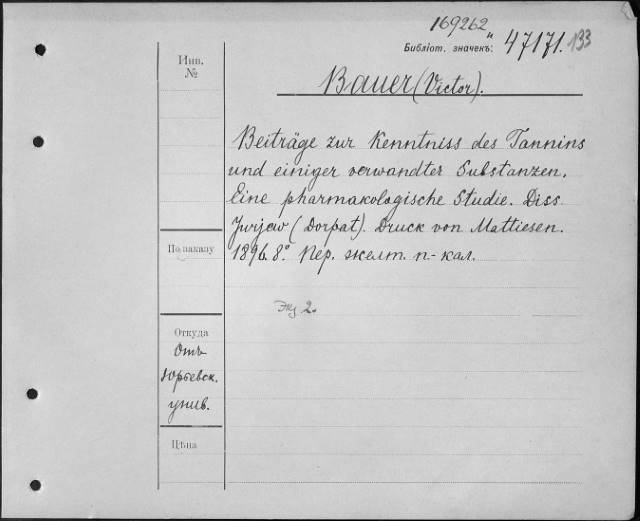 169262
"
Библіот. значекъ: 47171. 133
Bauer (Victor).
Инв.
№
Beiträge zur Kenntniss des Tannins
und einiger verwandter Substanzen.
Eine pharmakologische Studie. Diss
Jurjew (Dorpat). Druck von Mattiesen.
1896. 8°. Пер. желт. п-кал.
По заказу
Экз 2.
Откуда
Отъ
Юрьевск.
унив.
Цѣна